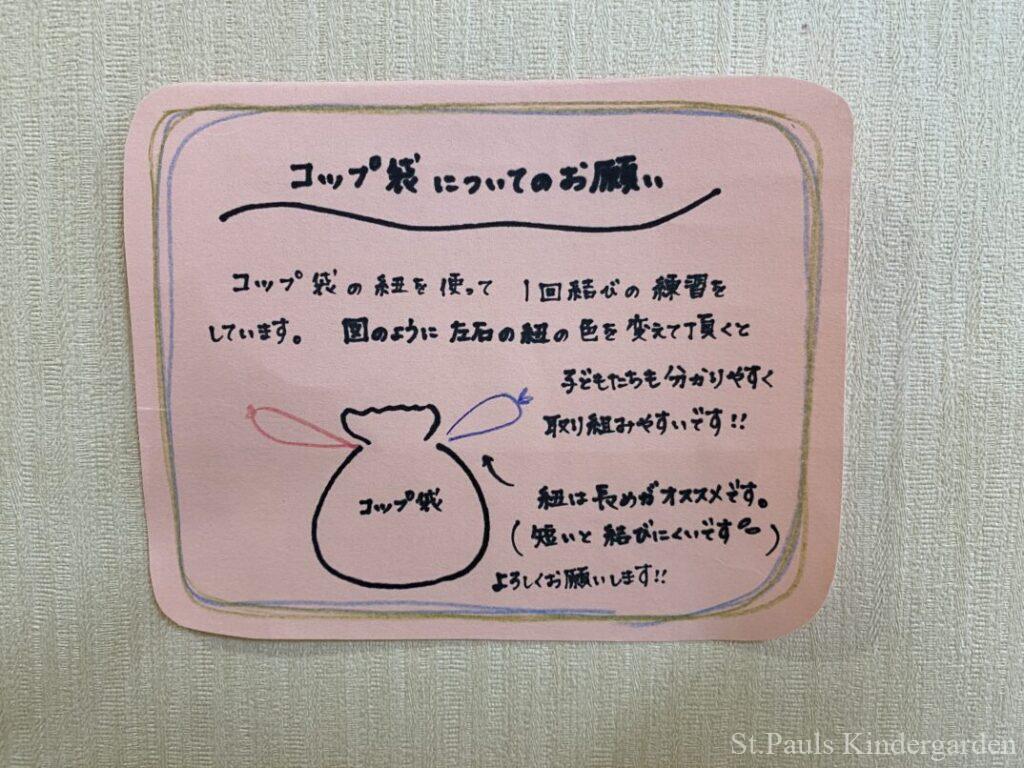 コップ袋についてのお願い
コップ袋の紐を使って 1回結びの練習を
しています。 図のように左右の紐の色を変えて頂くと
子どもたちも分かりやすく
取り組みやすいです!!
コップ袋
紐は長めがオススメです。
(短いと結びにくいです)
よろしくお願いします!!
St.Pauls Kindergarden